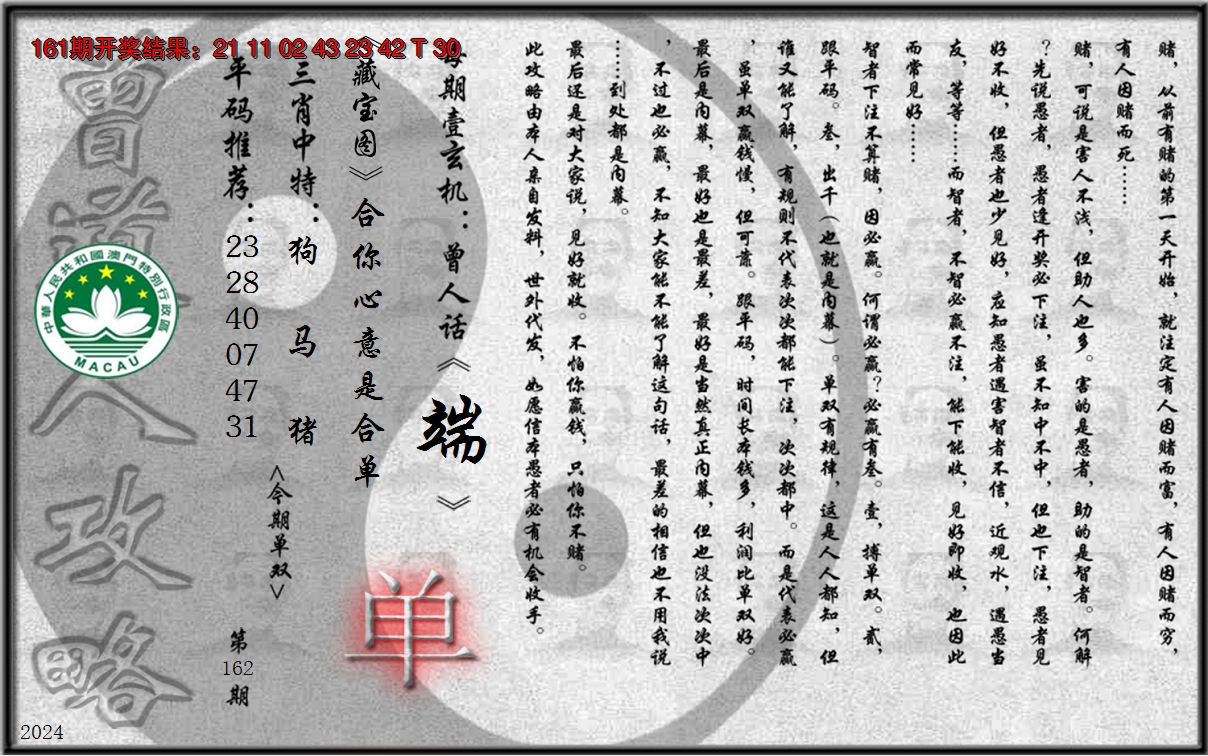 161期开奖结果：21 11 02 43 23 42 T 30
赌，从前有赌的第一天开始，就注定有人因赌而富，有人因赌而穷，
有人因赌而死……
赌，可说是害人不浅，但助人也多。害的是愚者，助的是智者。何解
？先说愚者，愚者逢开奖必下注，虽不知中不中，但也下注，愚者见
好不收，但愚者也少见好，应知愚者遇害智者不信，近观水，遇愚当
友，等等……而智者，不智必赢不注，能下能收，见好即收，也因此
而常见好……
智者下注不算赌，因必赢。何谓必赢？必赢有叁。壹，搏单双。贰，
跟平码。叁，出千（也就是内幕）。单双有规律，这是人人都知，但
谁又能了解，有规则不代表次次都能下注，次次都中。而是代表必赢
，虽单双赢钱慢，但可靠。跟平码，时间长本钱多，利润比单双好。
最后是内幕，最好也是最差，最好是当然真正内幕，但也没法次次中
，不过也必赢，不知大家能不能了解这句话，最差的相信也不用我说
……到处都是内幕。
最后还是对大家说，见好就收。不怕你赢钱，只怕你不赌。
此攻略由本人亲自发料，世外代发，如愿信本愚者必有机会收手。
每期壹玄机：曾人话《端》
《藏宝图》合你心意是合单
单
三肖中特：狗 马 猪
<今期单双>
平码推荐：23 28 40 07 47 31
第162期
曾道人攻略
中華人民共和國澳門特別行政區
MACAU
2024